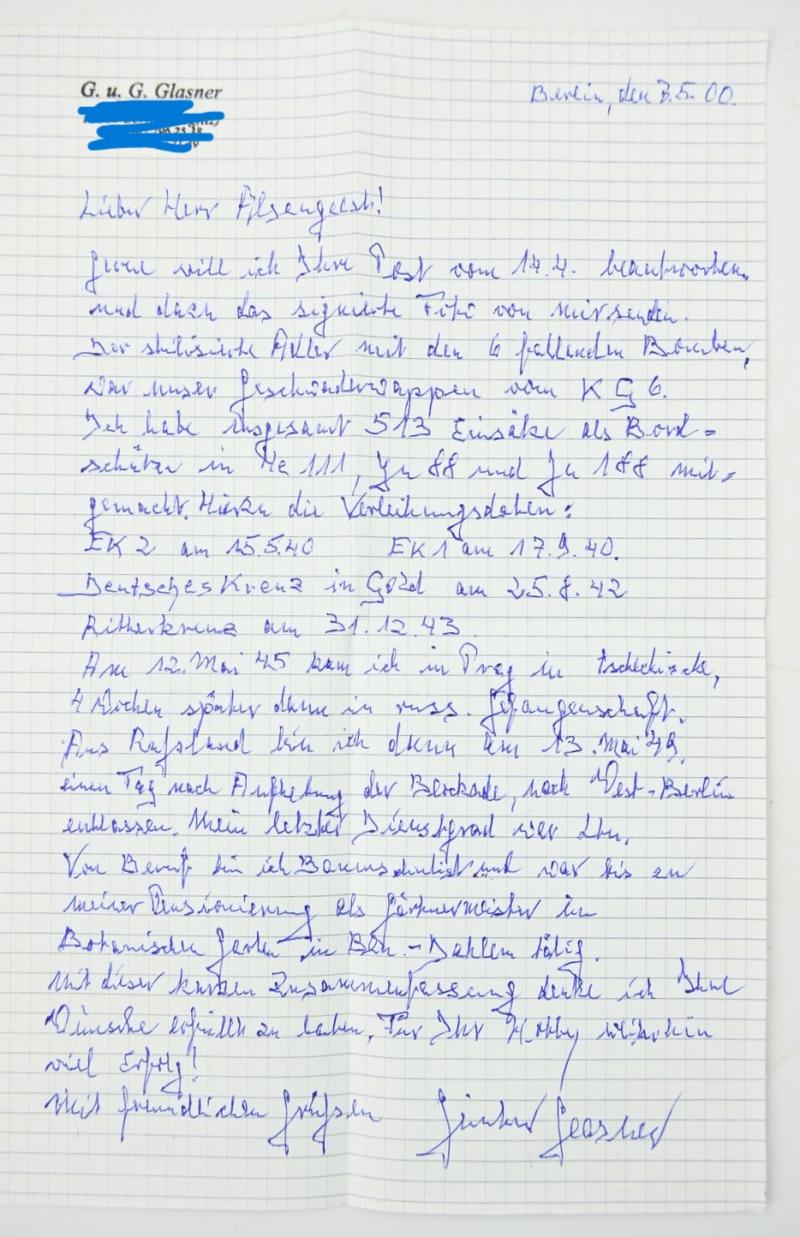 G. u. G. Glasner
Berlin, den 3.5.00.
Lieber Herr
Gerne will ich Ihre Post vom 14.4. beantworten,
und auch das signierte Foto von mir senden.
Der stilisierte Adler mit den 6 fallenden Bomben,
war unser Geschwaderwappen vom KG 6.
Ich habe insgesamt 513 Einsätze als Bord=
schütze in He 111, Ju 88 und Ju 188 mit=
gemacht. Hierzu die Verleihungsdaten:
EK 2 am 15.5.40 EK 1 am 17.9.40.
Deutsches Kreuz in Gold am 25.8.42
Ritterkreuz am 31.12.43.
Am 12. Mai 45 kam ich in Prag in tschechische,
4 Wochen später dann in russ. Gefangenschaft.
Aus Rußland bin ich dann am 13. Mai 49,
einen Tag nach Aufhebung der Blockade, nach West-Berlin
entlassen. Mein letzter Dienstgrad war Ltn.
Von Beruf bin ich Baumschulist und war bis zu
meiner Pensionierung als Gärtnermeister im
Botanischen Garten in Bln.-Dahlem tätig.
Mit dieser kurzen Zusammenfassung denke ich Ihre
Wünsche erfüllt zu haben. Für Ihr Hobby weiterhin
viel Erfolg!
Mit freundlichen Grüßen Günter Glasner